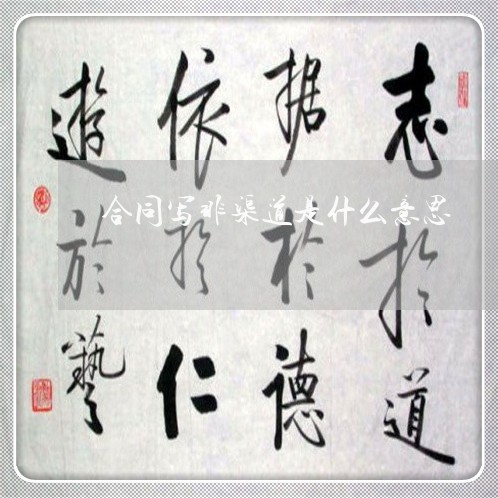 志於道
据於德
依於仁
遊於藝
合同写非渠道是什么意思